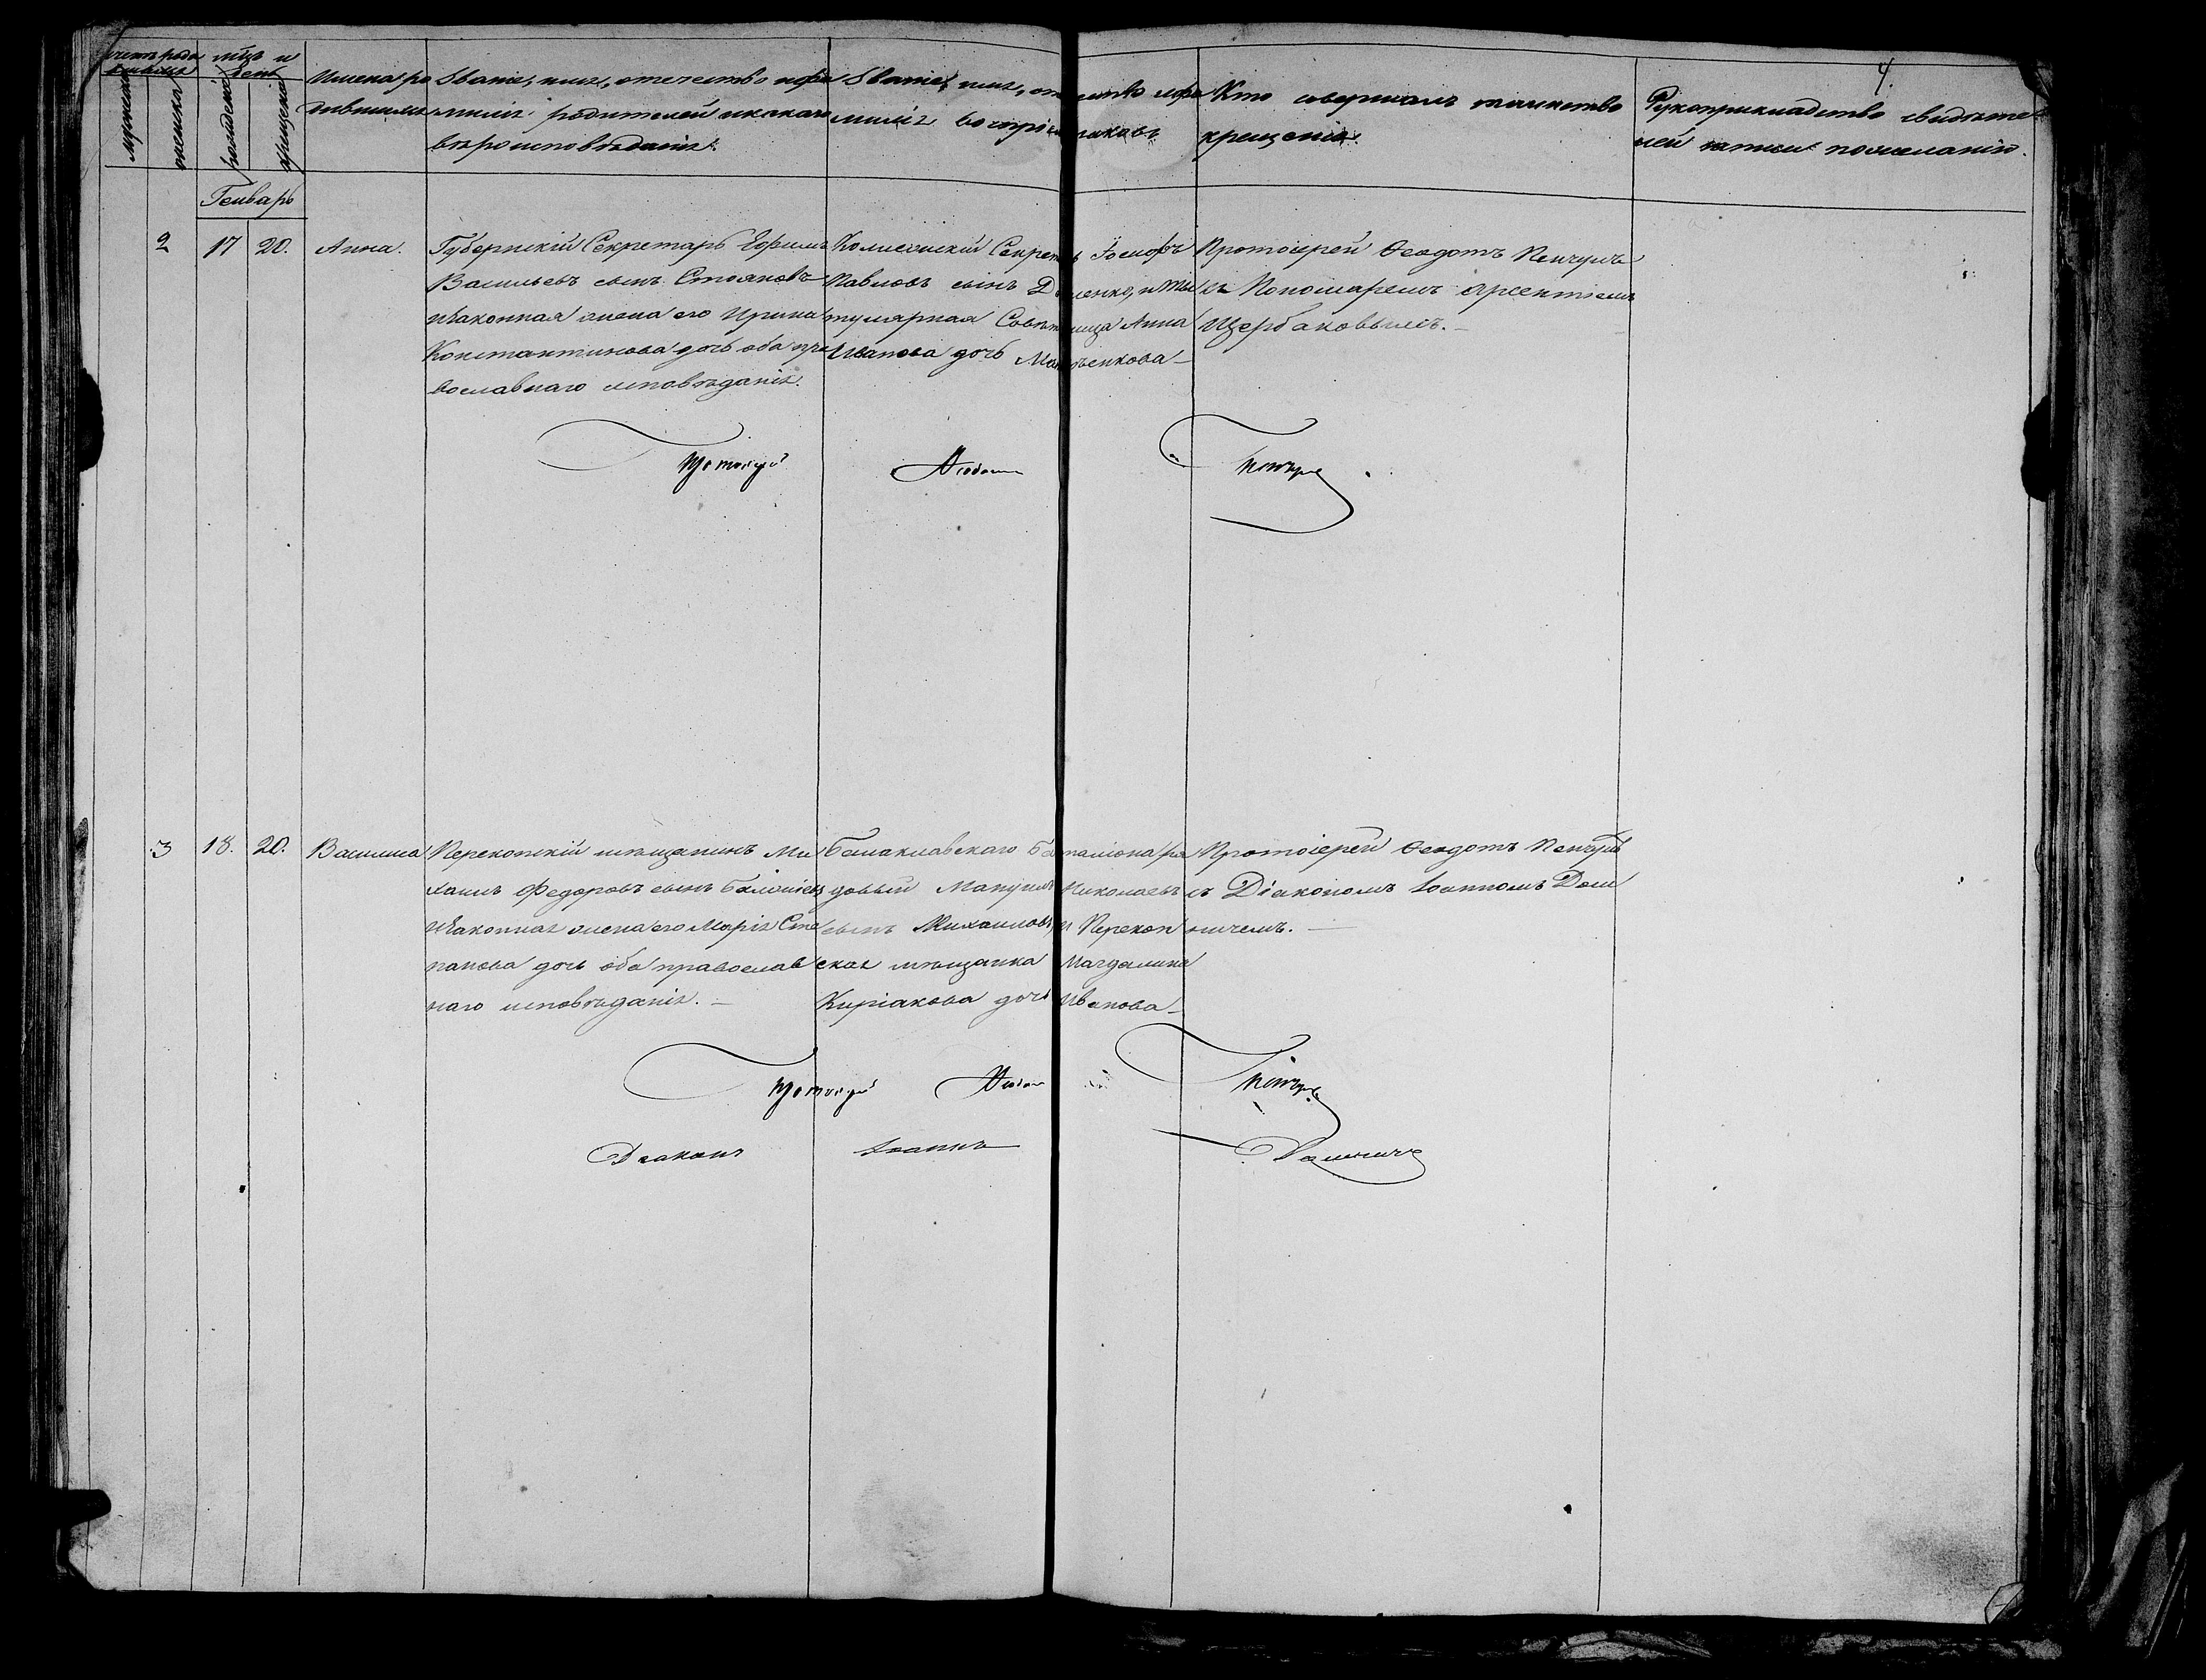 4.
счетъ родившихся
мѣць и день
мужеска
женска
рожденія
крещенія
Имена родившихся
Званіе, имя, отечество и фамилія родителей и какаго вѣроисповѣданія.
Званіе, имя, отечество и фамилія воспріемниковъ
Кто совершалъ таинство крещенія.
Рукоприкладство свидѣтелей записи по желанію.
Генварь
2
17
20.
Анна.
Губернскій Секретарь Ефимъ
Васильевъ сынъ Стояновъ
и законная жена его Ирина
Константинова дочь оба пра
вославнаго исповѣданія.
Коллежскій Секретарь Іосифъ
Павловъ сынъ и Ти
тулярная Совѣтница Анна
Иванова дочь
Протоіерей Ѳеодотъ
съ Пономаремъ Арсентіемъ
Щербаковымъ.
Протоіерей
3
18.
20.
Василиса
Перекопскій мѣщанинъ Ми
хаилъ Федоровъ сынъ
и законная жена его Марія Сте
панова дочь оба православ
наго исповѣданія.
Балаклавскаго Баталіона ря
довый Мануилъ Николаевъ
сынъ Михаиловъ и Перекоп
ская мѣщанка Магдалина
Киріакова дочь Иванова
Протоіерей Ѳеодотъ
съ Діакономъ Іоанномъ Дом
ничемъ.
Протоіерей
Діаконъ Іоаннъ